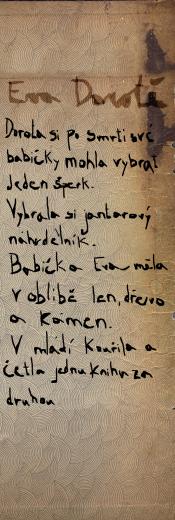 Eva Dorotě
Dorota si po smrti své
babičky mohla vybrat
Jeden šperk.
Vybrala si jantarový
náhrdelník.
Babička Eva měla
v oblibě len, dřevo
a kámen.
V mládí Kouřila a
četla jednu knihu za
druhou